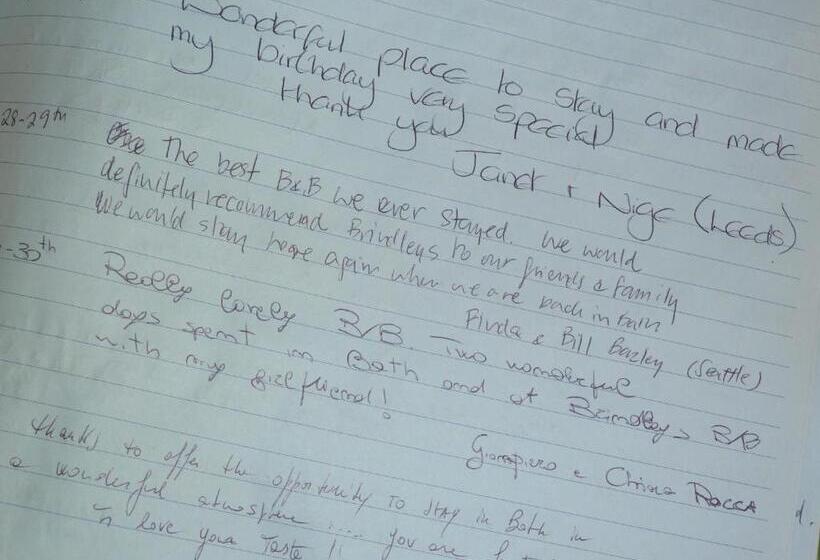 Wonderful place to stay and made
my birthday very special
thank you
Janet + Nige (Leeds)
28-29th
the best B&B we ever stayed. We would
definitely recommend Brindleys to our friends & family
We would stay here again when we are back in town
& Bill Bazley (Seattle)
-30th
Really lovely B/B. Two wonderful
days spent in Bath and at Brindleys B/B
with my girlfriend!
Giampiero e Chiara ROCCA
thanks to offer the opportunity to stay in Bath in
a wonderful atmosphere .... you are
love your taste !!